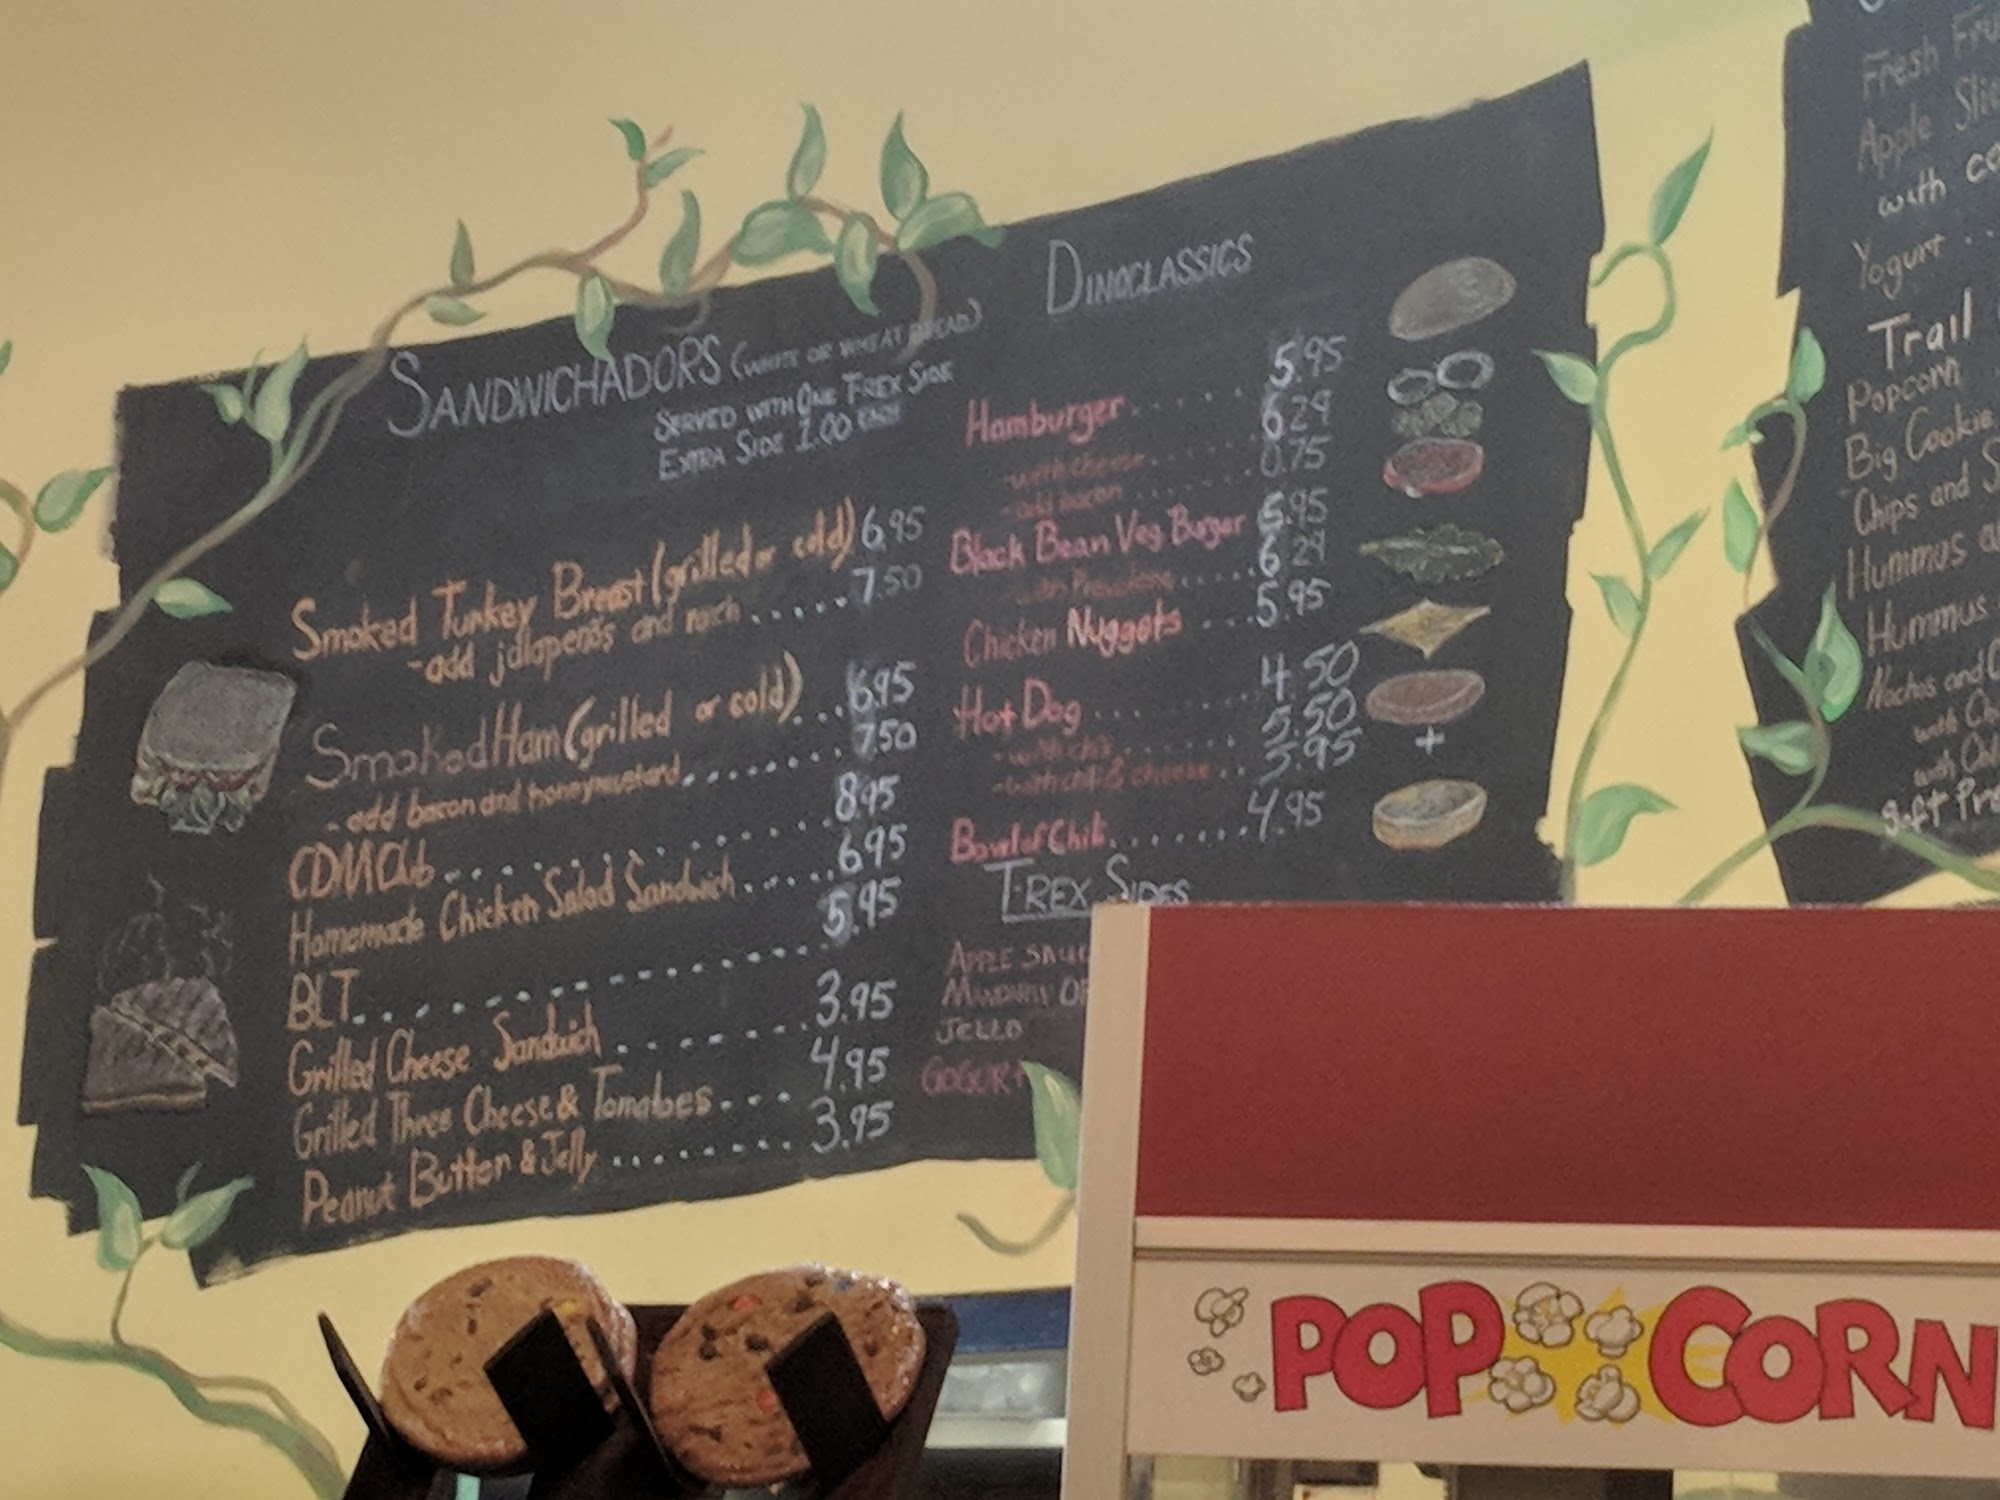 SANDWICHADORS (WHITE OR WHEAT BREAD)
SERVED WITH ONE T-REX SIDE
EXTRA SIDE 1.00 EACH
Smoked Turkey Breast (grilled or cold) 6.95
-add jalapenos and ranch ...... 7.50
Smoked Ham (grilled or cold) ... 6.95
-add bacon and honeymustard ......... 7.50
CDM Club ............... 8.95
Homemade Chicken Salad Sandwich ...... 6.95
BLT ................ 5.95
Grilled Cheese Sandwich ........ 3.95
Grilled Three Cheese & Tomatoes ... 4.95
Peanut Butter & Jelly ........ 3.95
DINOCLASSICS
Hamburger ....... 5.95
-with cheese ....... 6.29
-add bacon ....... 0.75
Black Bean Veg Burger 5.95
with Provolone ..... 6.29
Chicken Nuggets ... 5.95
Hot Dog ........ 4.50
-with chili ....... 5.50
-with chili & cheese .. 5.95
+
Bowl of Chili ....... 4.95
T-REX SIDES
APPLE SAUC
MANDARIN OR
JELLO
GOGURT
Fresh Fru
Apple Slic
with ca
Yogurt ..
Trail
Popcorn
Big Cookie
Chips and S
Hummus a
Hummus
Nachos and C
with Ch
with Chil
Soft Pre
POPCORN